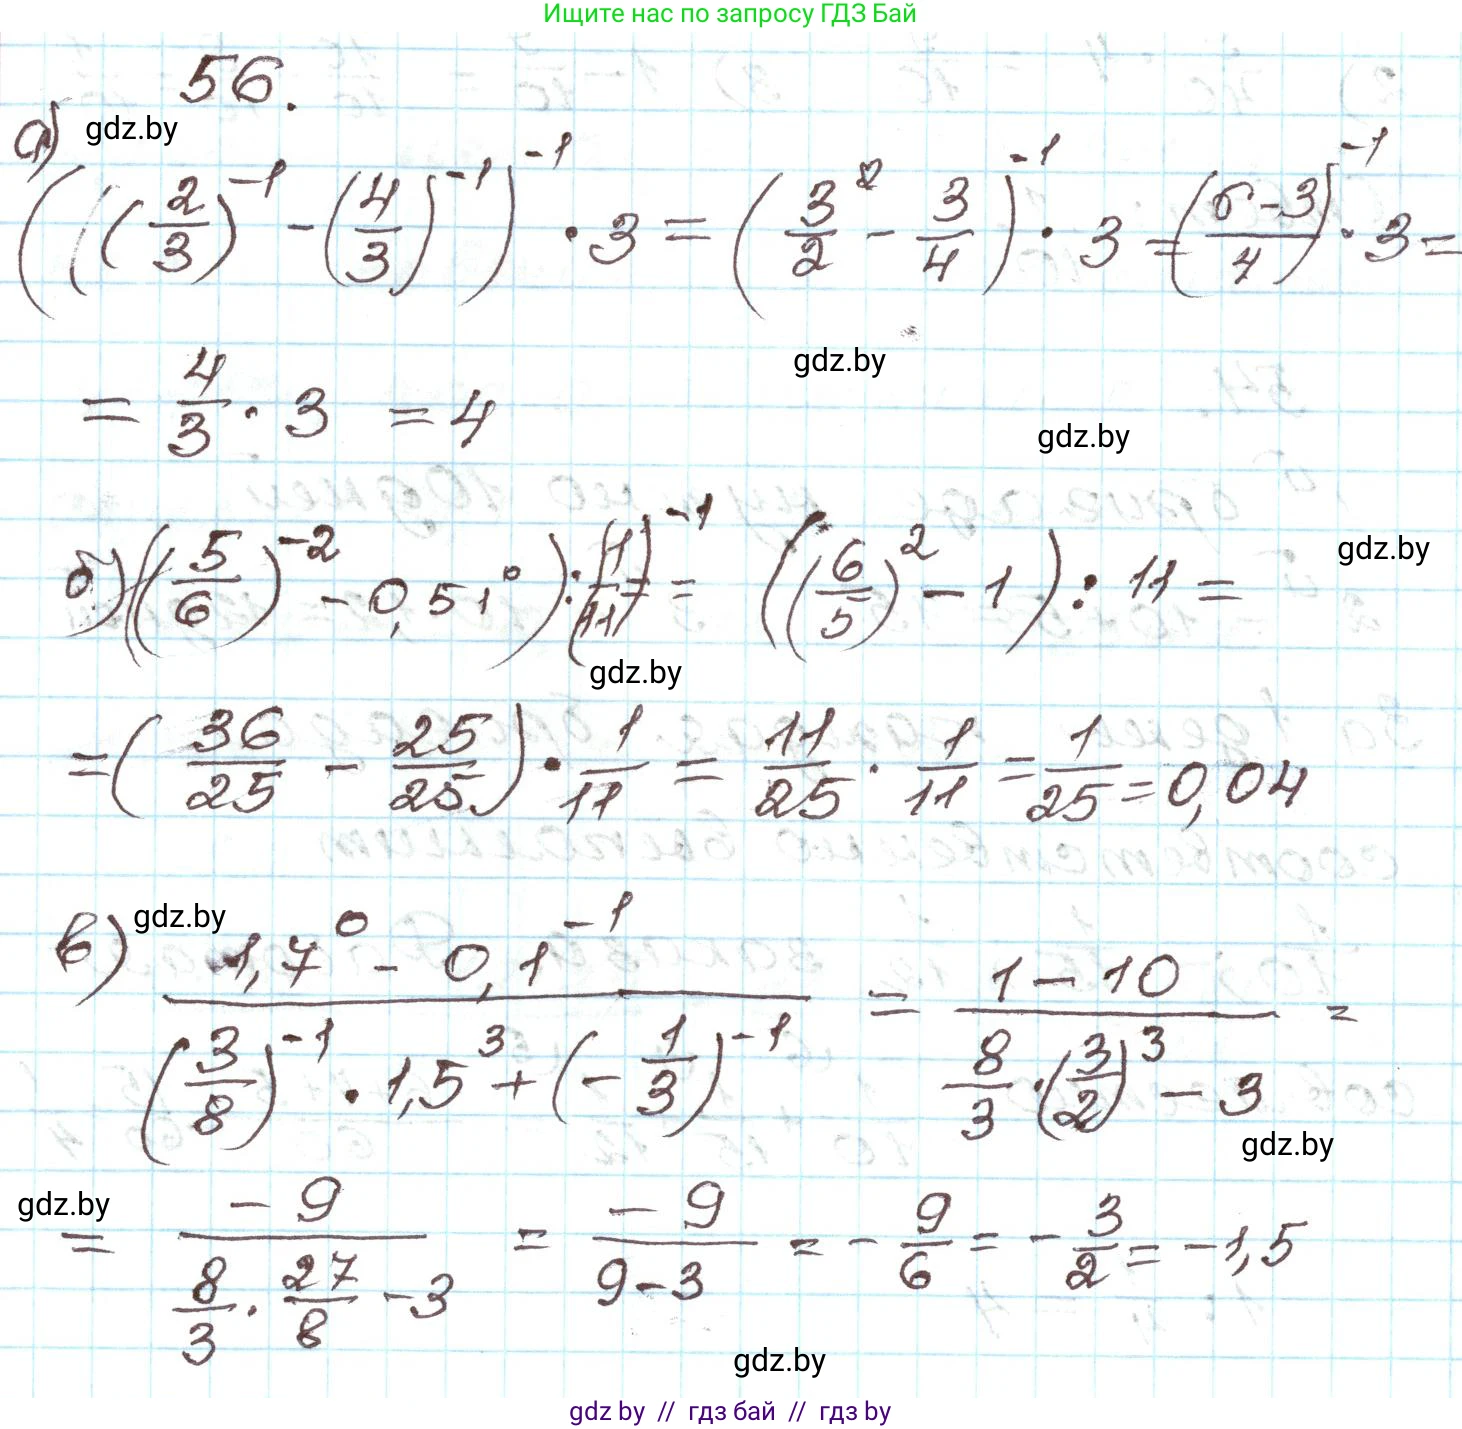 Ищите нас по запросу ГДЗ Бай
56.
gdz.by
а) (((2/3)^-1 - (4/3)^-1)^-1 · 3 = (3/2 - 3/4)^-1 · 3 = ((6-3)/4)^-1 · 3 =
gdz.by
= 4/3 · 3 = 4
gdz.by
gdz.by
б) ((5/6)^-2 - 0,51^0) : (1/11)^-1 = ((6/5)^2 - 1) : 11 =
gdz.by
= (36/25 - 25/25) · 1/11 = 11/25 · 1/11 = 1/25 = 0,04
gdz.by
в) (1,7^0 - 0,1^-1) / ((3/8)^-1 · 1,5^3 + (-1/3)^-1) = (1 - 10) / (8/3 · (3/2)^3 - 3) =
gdz.by
gdz.by
= -9 / (8/3 · 27/8 - 3) = -9 / (9-3) = -9/6 = -3/2 = -1,5
gdz.by
gdz by // гдз бай // гдз by